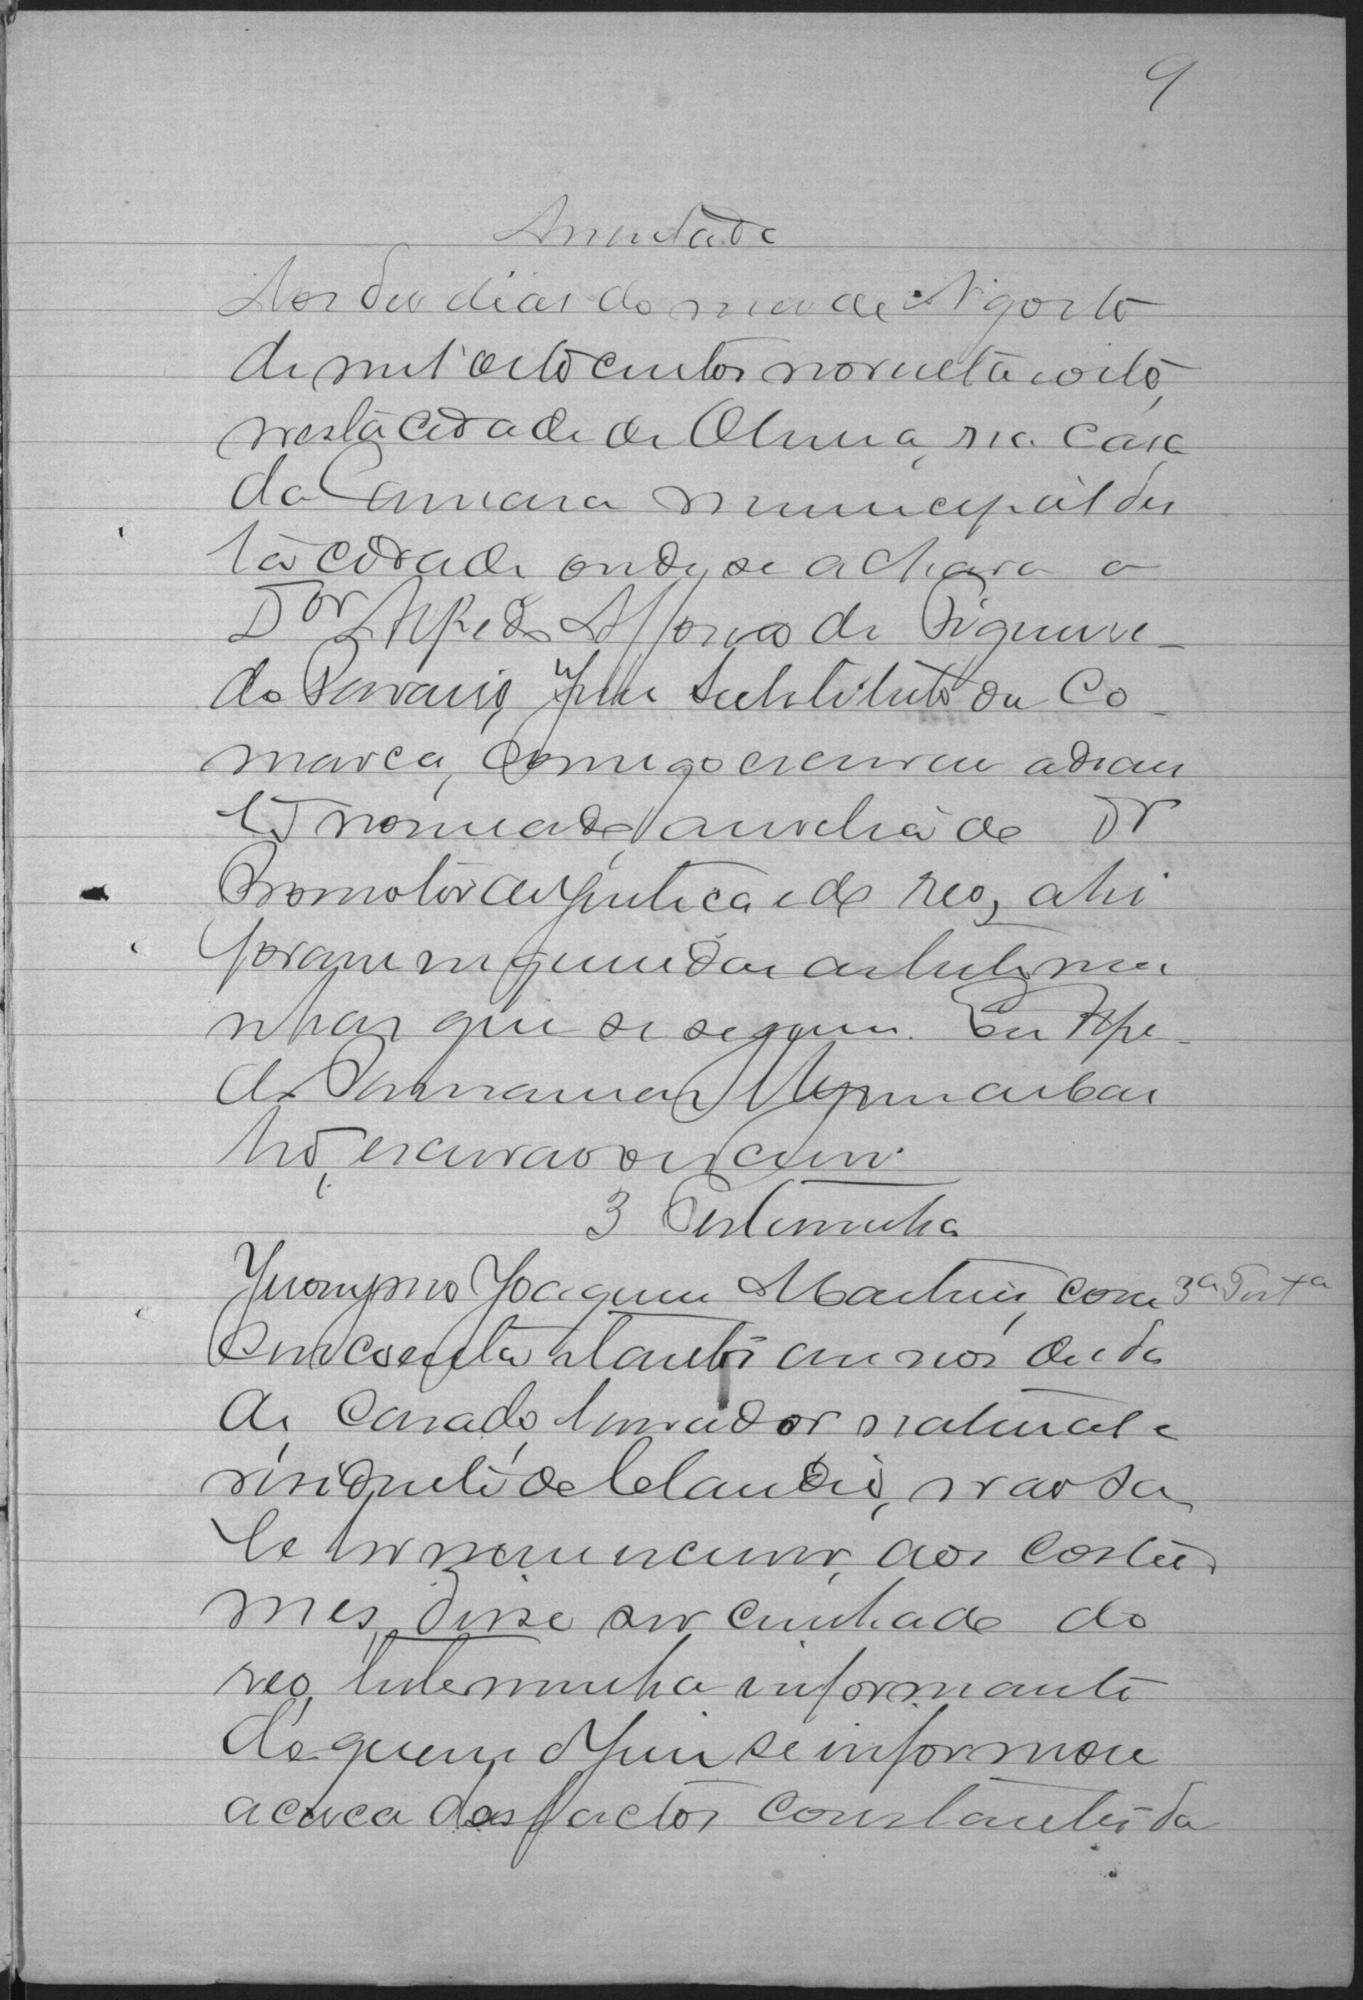 9
Assentada
Aos dez dias do mez de Agosto
de mil oitocentos noventa e oito,
nesta cidade de , na casa
da Camara municipal des
ta cidade onde se achava o
Dor Alfredo Affonso de Figueire-
do , Juiz Substituto da Co-
marca, comigo escrivão adian
te nomeado, a revelia do Dr
Promotor de Justiça e do reo, ahi
foram inqueridas as testemu
nhas que se seguem. Eu
de
escrivão o escrevi.
3 Testemunha
Jeronymo Joaquim Martins, com 3a Testa
cincoenta e tantos annos de ida
de, casado, lavrador natural e
residente de Claudio, não sa
be ler nem escrever, aos costu
mes disse ser cunhado do
reo, testemunha informante
de quem o Juiz se informou
acerca dos factos constantes da